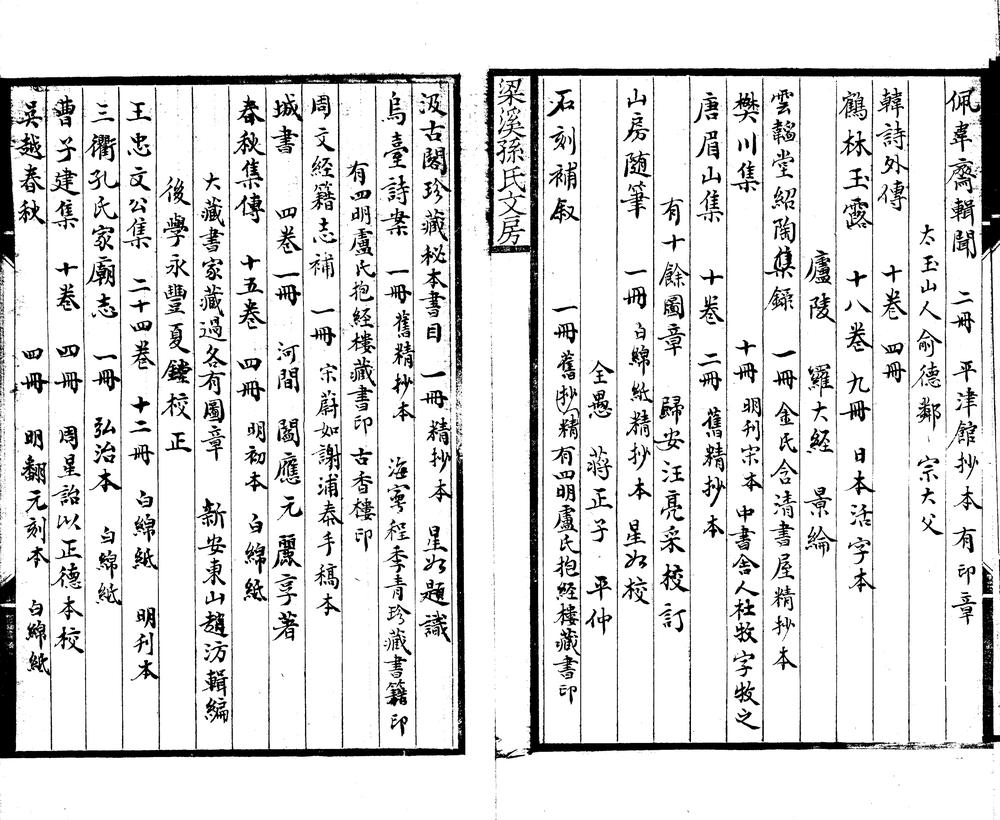 佩韋齋輯聞　二冊　平津館抄本有印章
太玉山人俞德鄰　宗大父
韓詩外傳　十卷　四冊
鶴林玉露　十八卷　九冊　日本活字本
廬陵　羅大經　景綸
雲韜堂紹陶集錄　一冊　金氏含清書屋精抄本
樊川集　十冊　明刊宋本　中書舍人杜牧字牧之
唐眉山集　十卷　二冊　舊精抄本
有十餘圖章　歸安汪亮采校訂
山房随筆　一冊　白綿紙精抄本　星如校
全愚　蔣正子　平仲
石刻補叙　一冊舊抄精有四明盧氏抱經樓藏書印
梁溪孫氏文房
汲古閣珍藏秘本書目　一冊精抄本　星如題識
烏臺詩案　一冊舊精抄本　海寧程季青珍藏書籍印
有四明盧氏抱經樓藏書印　古香樓印
周文經籍志補　一冊　宋蔚如謝浦泰手稿本
城書　四卷一冊　河間　閻應元　麗亨著
春秋集傳　十五卷　四冊　明初本　白綿紙
大藏書家藏過各有圖章　新安東山趙汸輯編
後學永豐夏鏜校正
王忠文公集　二十四卷　十二冊　白綿紙　明刊本
三衢孔氏家廟志　一冊　弘治本　白綿紙
曹子建集　十卷　四冊　周星詒以正德本校
吳越春秋　四冊　明翻元刻本　白綿紙